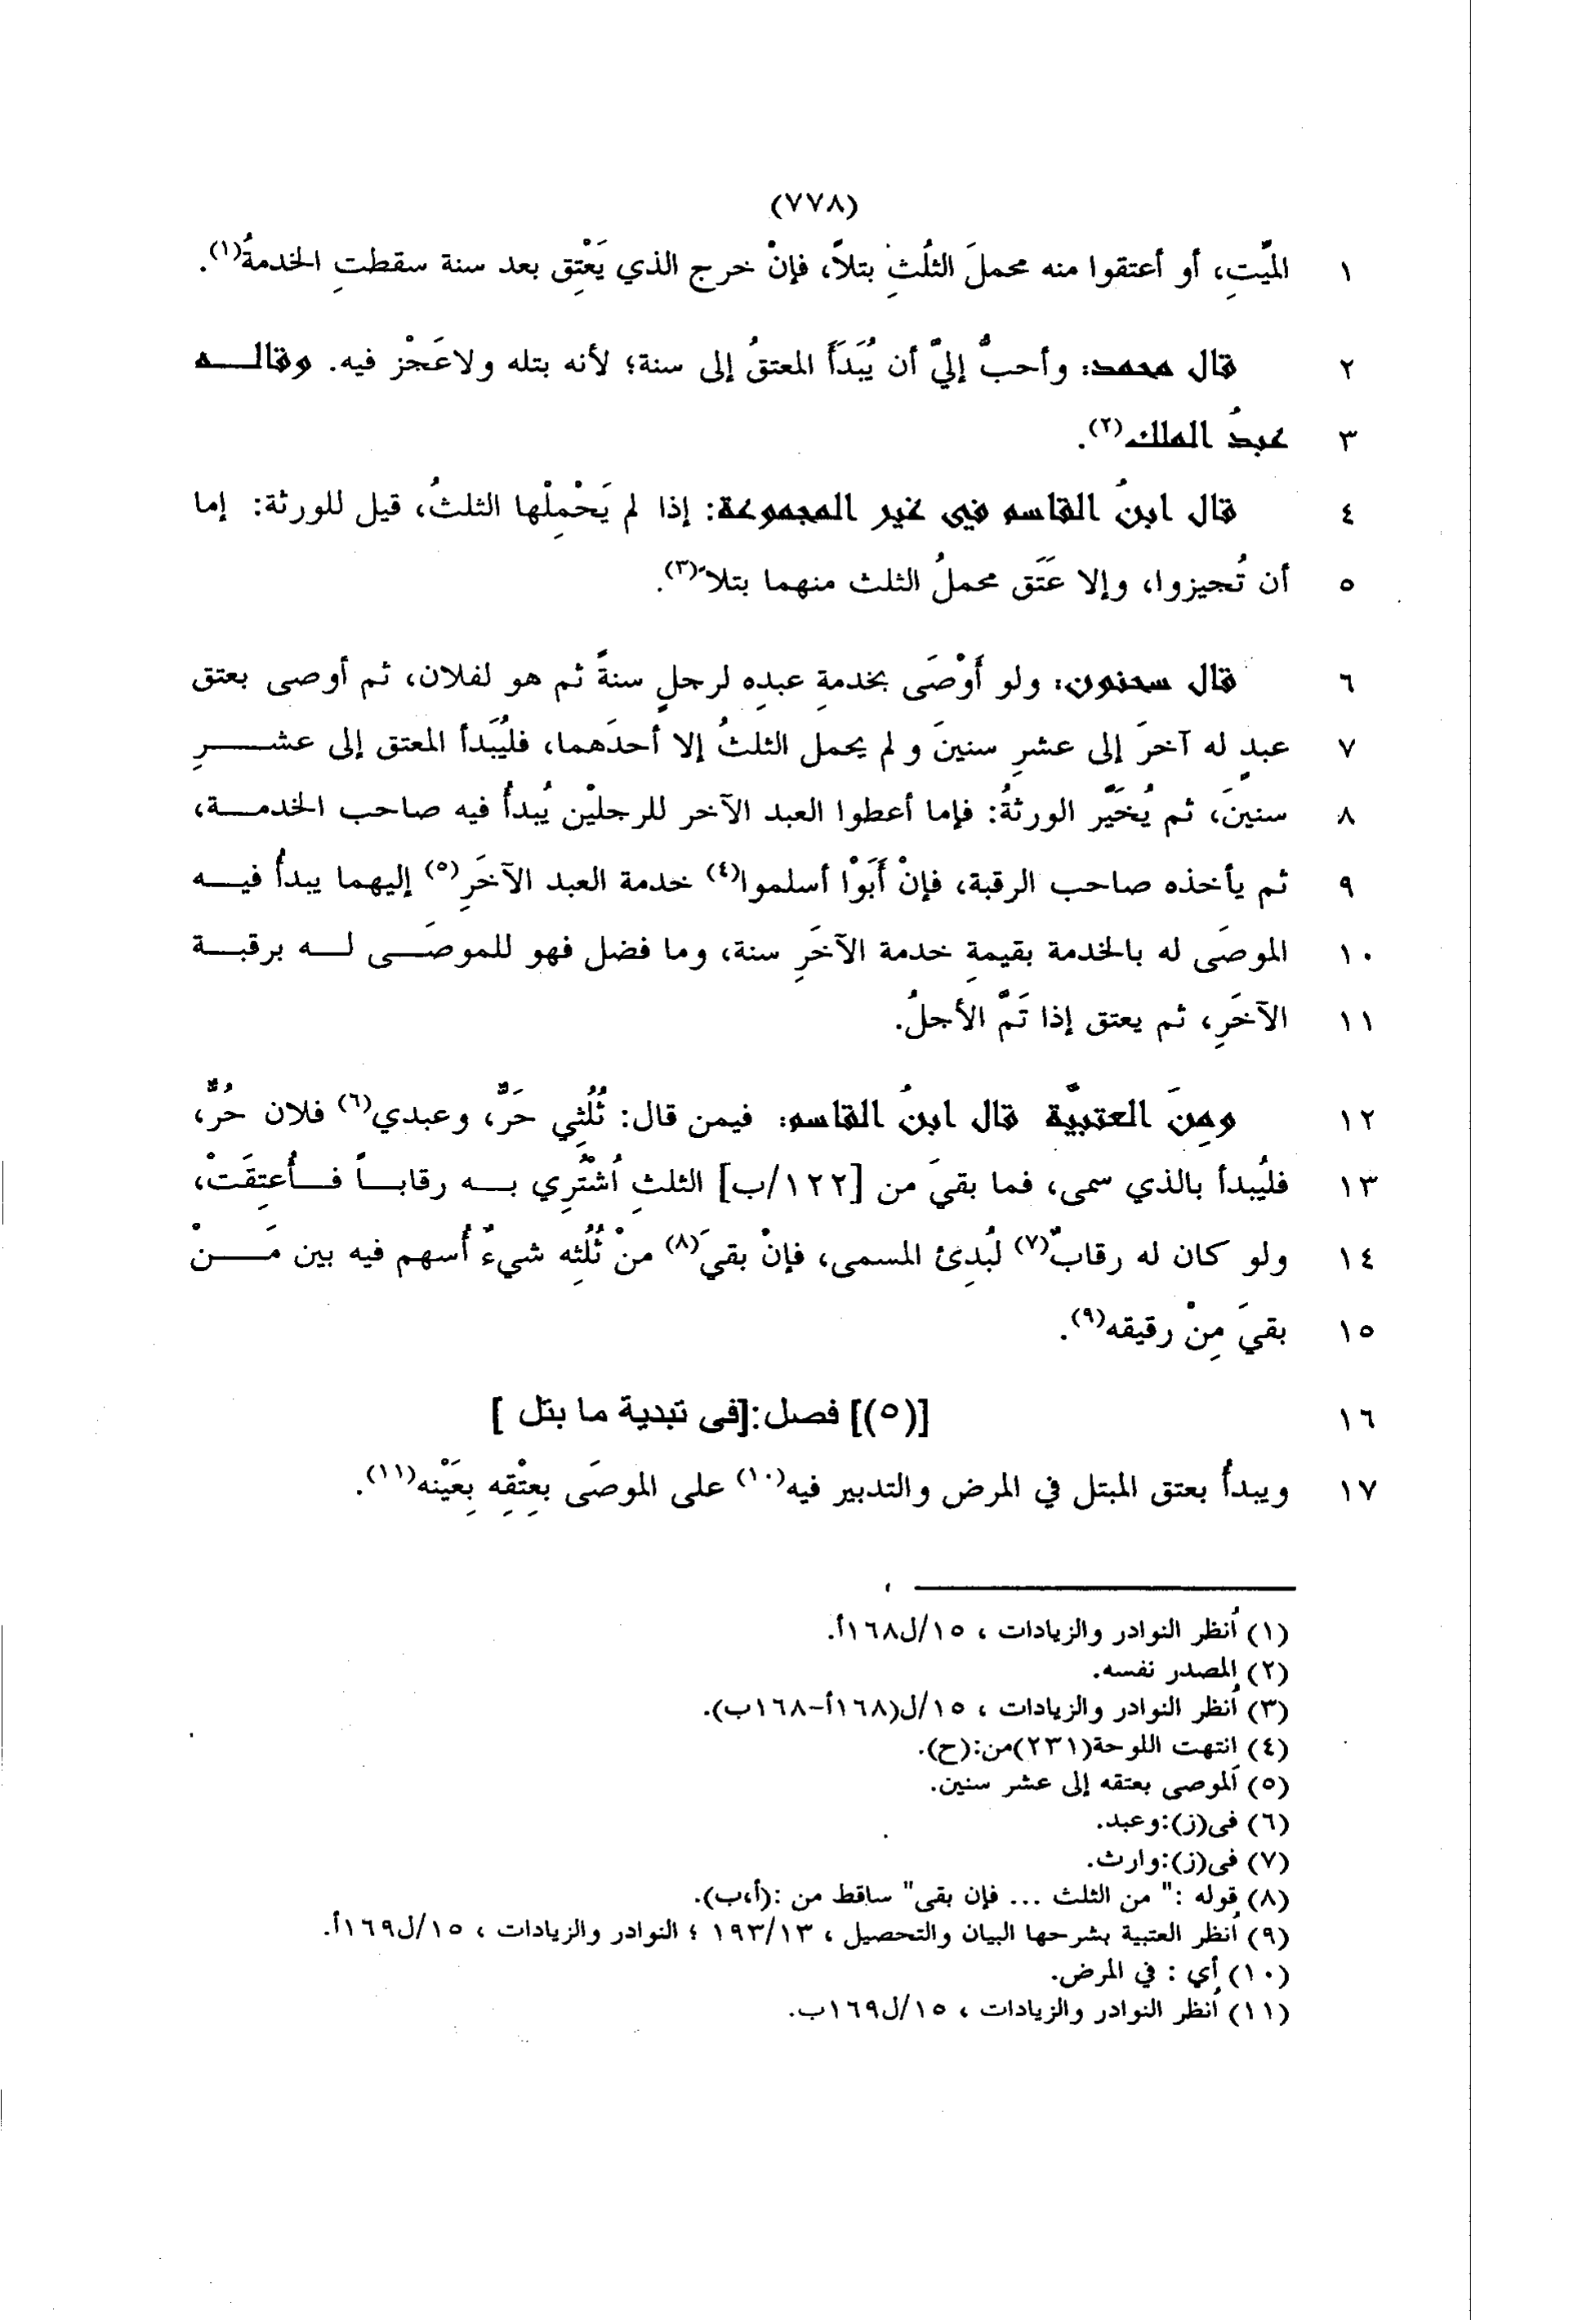 (٧٧٨)
١ الميِّتِ، أو أعتقوا منه محملَ الثلُثِ بتلاً، فإنْ خرج الذي يَعْتِق بعد سنة سقطتِ الخدمةُ(١).
٢ قال محمد: وأحبُّ إليَّ أن يُبَدَأَ المعتقُ إلى سنة؛ لأنه بتله ولاعَجْز فيه. وقالـــه
٣ عبدُ الملك(٢).
٤ قال ابنُ القاسم في غير المجموعة: إذا لم يَحْمِلْها الثلثُ، قيل للورثة: إما
٥ أن تُجيزوا، وإلا عَتَق محملُ الثلث منهما بتلاً(٣).
٦ قال سحنون: ولو أَوْصَى بخدمةِ عبدِه لرجلٍ سنةً ثم هو لفلان، ثم أوصى بعتق
٧ عبدٍ له آخرَ إلى عشرِ سنينَ و لم يحمل الثلثُ إلا أحدَهما، فليُبَدأ المعتق إلى عشـــرِ
٨ سنينَ، ثم يُخَيَّر الورثةُ: فإما أعطوا العبد الآخر للرجليْن يُبدأُ فيه صاحب الخدمـــة،
٩ ثم يأخذه صاحب الرقبة، فإنْ أَبَوْا أسلموا(٤) خدمة العبد الآخَرِ(٥) إليهما يبدأُ فيـــه
١٠ الموصَى له بالخدمة بقيمةِ خدمة الآخَرِ سنة، وما فضل فهو للموصَـــى لـــه برقبـــة
١١ الآخَرِ، ثم يعتق إذا تَمَّ الأجلُ.
١٢ ومِنَ العتبيَّة قال ابنُ القاسم: فيمن قال: ثُلُثِي حَرٌّ، وعبدي(٦) فلان حُرٌّ،
١٣ فليُبدأ بالذي سمى، فما بقيَ من [١٢٢/ب] الثلثِ اُشْتُرِي بـــه رقابـــاً فـــأُعتِقَتْ،
١٤ ولو كان له رقابٌ(٧) لبُدِئ المسمى، فإنْ بقيَ(٨) منْ ثُلُثِه شيءٌ أُسهم فيه بين مَـــنْ
١٥ بقيَ مِنْ رقيقه(٩).
١٦ [(٥)] فصل:[فى تبدية ما بتل ]
١٧ ويبدأُ بعتق المبتل في المرض والتدبير فيه(١٠) على الموصَى بعِتْقِه بِعَيْنه(١١).
(١) اُنظر النوادر والزيادات ، ١٥/ل١٦٨أ.
(٢) المصدر نفسه.
(٣) اُنظر النوادر والزيادات ، ١٥/ل(١٦٨أ-١٦٨ب).
(٤) انتهت اللوحة(٢٣١)من:(ح).
(٥) اَلموصى بعتقه إلى عشر سنين.
(٦) فى(ز):وعبد.
(٧) فى(ز):وارث.
(٨) قوله :" من الثلث ... فإن بقى" ساقط من :(أ،ب).
(٩) اُنظر العتبية بشرحها البيان والتحصيل ، ١٩٣/١٣ ؛ النوادر والزيادات ، ١٥/ل١٦٩أ.
(١٠) أي : في المرض.
(١١) اُنظر النوادر والزيادات ، ١٥/ل١٦٩ب.